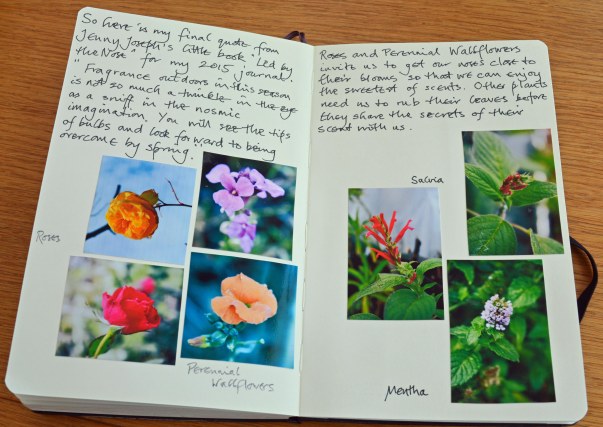 So here is my final quote from
Jenny Joseph's little book 'Led by
the Nose' for my 2015 journal.
"Fragrance outdoors in this season
is not so much a twinkle in the eye
as a sniff in the nosmic
imagination. You will see the tips
of bulbs and look forward to being
overcome by spring."
Roses
Perennial
Wallflowers
Roses and Perennial Wallflowers
invite us to get our noses close to
their blooms so that we can enjoy
the sweetest of scents. Other plants
need us to rub their leaves before
they share the secrets of their
scent with us.
Salvia
Mentha